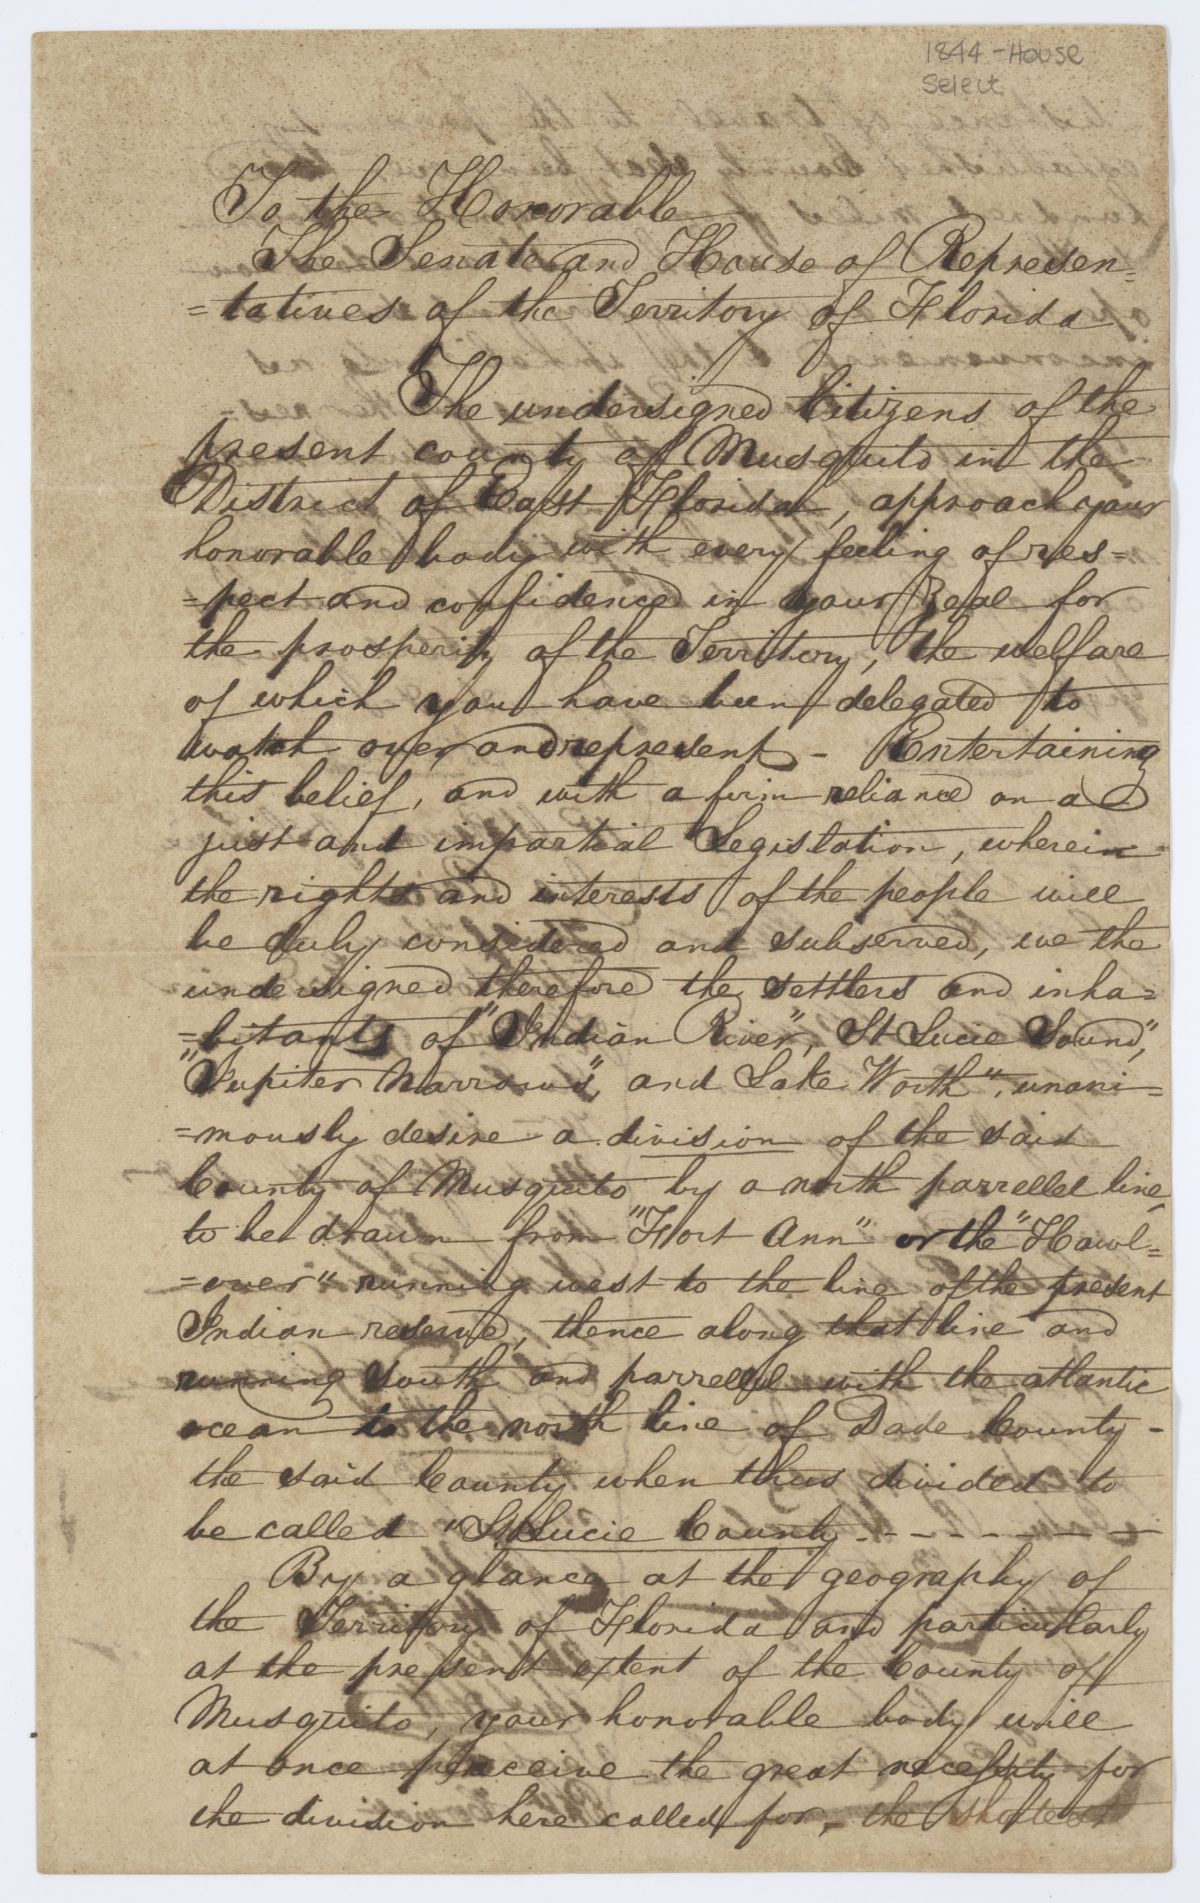 1844 - House
Select
To the Honorable
The Senate and House of Represen=
=tatives of the Territory of Florida
The undersigned Citizens of the
present county of Musquito in the
District of East Florida, approach your
honorable body with every feeling of res=
=pect and confidence in your Zeal for
the prosperity of the Territory, the welfare
of which you have been delegated to
watch over and represent - Entertaining
this belief, and with a firm reliance on a
just and impartial Legislation, wherein
the rights and interests of the people will
be duly considered and subserved, we the
undersigned therefore the settlers and inha=
=bitants of "Indian River", St Lucie Sound",
"Jupiter Narrows", and Lake Worth", unani=
=mously desire a division of the said
County of Musquito by a north parrellel line
to be drawn from "Fort Ann" or the "Hawl=
=over" running west to the line of the present
Indian reserve, thence along that line and
running south and parrellel with the atlantic
ocean to the north line of Dade County -
the said County when thus divided to
be called "St Lucie County - - - - - - -
By a glance at the geography of
the Territory of Florida and particularly
at the present extent of the County of
Musquito, your honorable body will
at once perceive the great necessity for
the division here called for, - the shortest